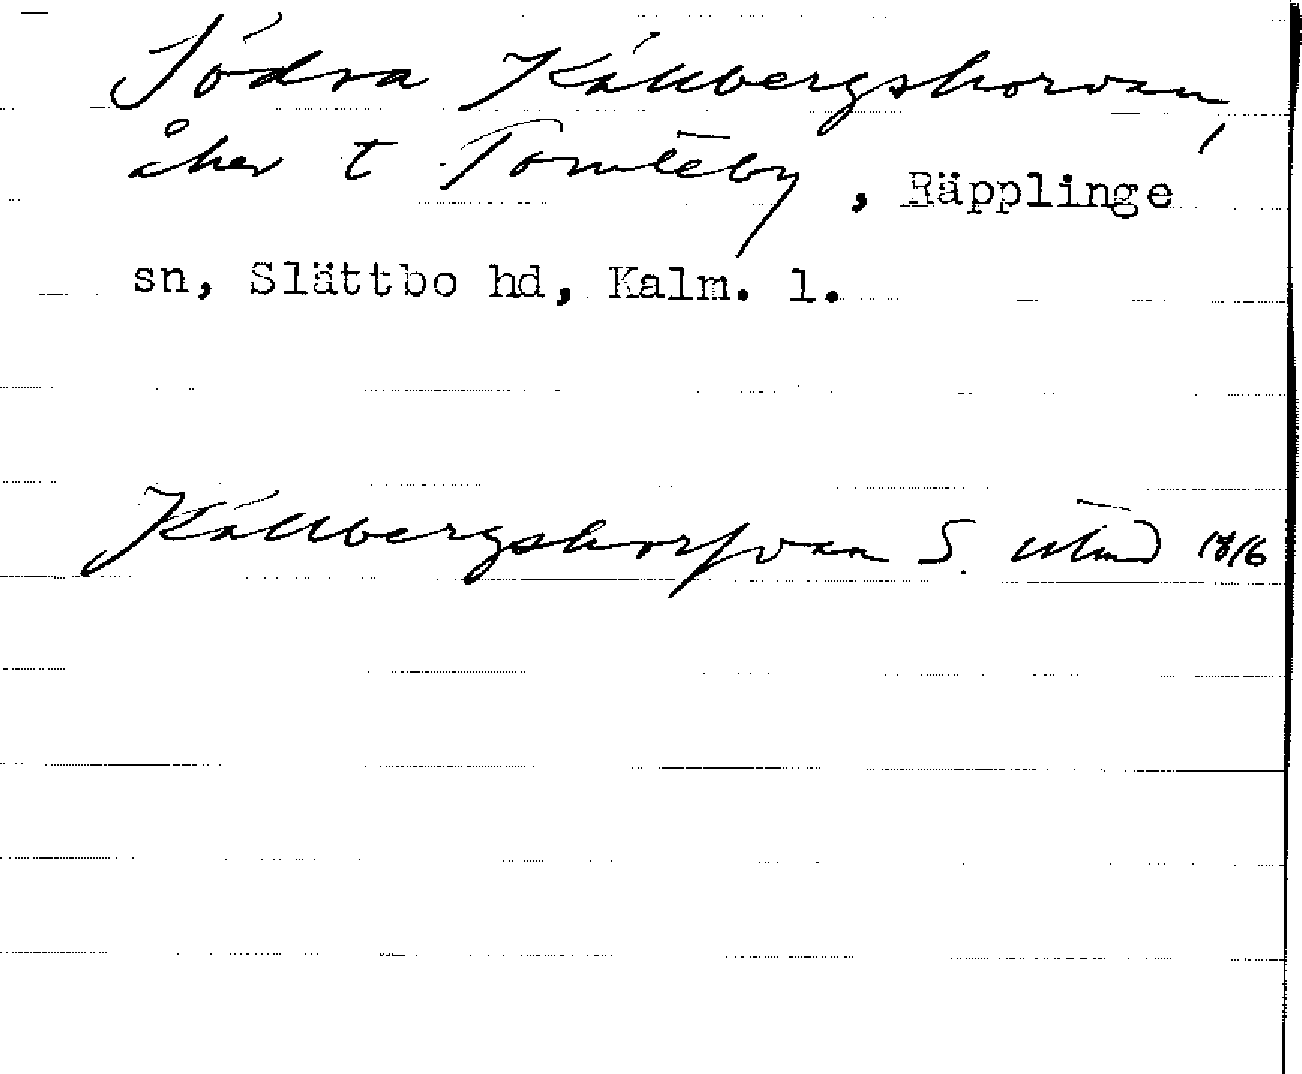 Södra Källbergshorvan,
åker t Tomteby, Räpplinge
sn, Slättbo hd, Kalm. l.
Källbergshorfvan S.